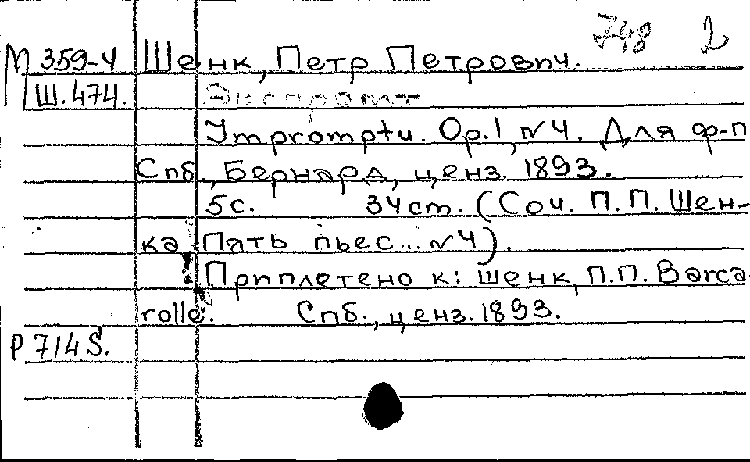 748 2
М 359-4 Шенк, Петр Петрович.
Ш.474. Экспромт
Impromptu. Op.1, №4. Для ф-п
Спб., Бернард, ценз. 1893.
5с. 34ст. (Соч. П.П. Шен-
ка Пять пьес... №4).
Приплетено к: Шенк, П.П. Barca-
rolle. Спб., ценз. 1893.
Р 714 S.